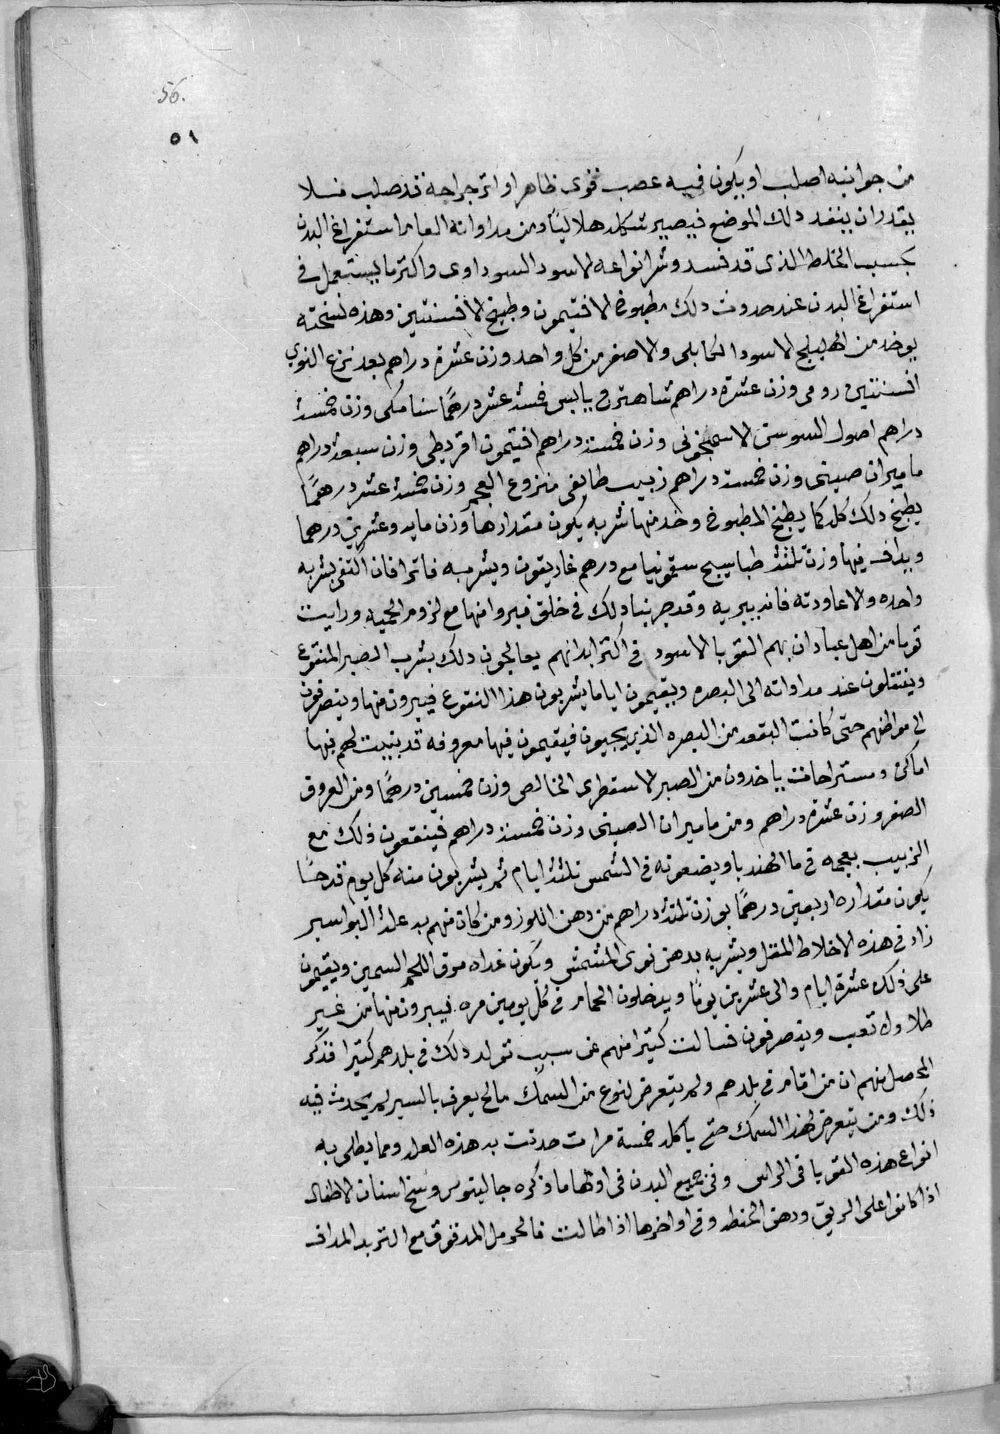 56.
٥١
من جوانبه اصلب او يكون فيه عصب قوى ظاهرا او اثر جراحة قد صلب فلا
يقدر ان ينفد دلك الموضع فيصير شكله هلاليًا ومن مداواته العام استفراغ البدن
بحسب الخلط الذى قد فسد وشر انواعه الاسود السوداوى واكثر ما يستعمل فى
استفراغ البدن عند حدوث دلك مطبوخ الافتيمون وطبيخ الافسنتين وهذه نسخته
يوخذ من الهليلج الاسود الكابلى والاصفر من كل واحد وزن عشرة دراهم بعد نزع النوى
افسنتين رومى وزن عشرة دراهم شاهترج يابس خمسة عشر درهمًا سنا مكى وزن خمسة
دراهم اصول السوسن الاسمنجونى وزن خمسة دراهم افتيمون اقريطى وزن سبعة دراهم
ماميران صينى وزن خمسة دراهم زبيب طايفى منزوع العجم وزن خمسة عشر درهمًا
يطبخ دلك كله كما يطبخ المطبوخ وخد منها شربه يكون مقدارها وزن مايه وعشرين درهما
ويداف فيها وزن ثلثة طساسيج سقمونيا مع درهم غاريقون ويشربه فاترا فان اكتفى بشربه
واحده والا عاودته فانه يبريه وقد جربنا دلك فى خلق فبروا منها مع لزوم الحميه ورايت
قوما من اهل عبادان بهم القوبا الاسود فى اكثر ابدانهم يعالجون دلك بشرب الصبر المنقوع
وينتقلون عند مداواته الى البصره ويقيمون اياما يشربون هذا النقوع فيبرون منها وينصرفون
الى مواطنهم حتى كانت البقعه من البصره الذى يجيون فيقيمون فيها معروفه قد بنيت لهم فيها
اماكن ومستراحات ياخدون من الصبر الاسقطرى الخالص وزن خمسين درهمًا ومن العروق
الصفر وزن عشرة دراهم ومن ماميران الصينى وزن خمسة دراهم فينقعون ذلك مع
الزبيب بعجمه فى ما الهندبا ويضعونه فى الشمس ثلثة ايام ثم يشربون منه كل يوم قدحًا
يكون مقداره اربعين درهمًا بوزن ثلثة دراهم من دهن اللوز ومن كان منهم به علة البواسير
زاد فى هذه الاخلاط المقل ويشربه بدهن نوى المشمش ويكون غداه مرق اللحم السمين ويقيمون
على ذلك عشرة ايام والى عشرين يومًا ويدخلون الحمام فى كل يومين مره فيبرون منها من غير
طلا ولا تعب وينصرفون فسالت كثيرا منهم عن سبب تولد دلك فى بلدهم كثيرا فذكر
المحصل منهم ان من اقام فى بلدهم ولم يتعرض لنوع من السمك مالح يعرف بالسير لم يحدث فيه
ذلك ومن يتعرض لهذا السمك حتى ياكله خمسة مرات حدثت به هذه العلة ومما يطلى به
انواع هذه القوبا فى الراس وفى جميع البدن فى اولها ما ذكره جالينوس وسخ اسنان الاطفال
اذا كانوا على الريق ودهن الحنطه وفى اواخرها اذا طالت فالحرمل المدقوق مع التربد المداف